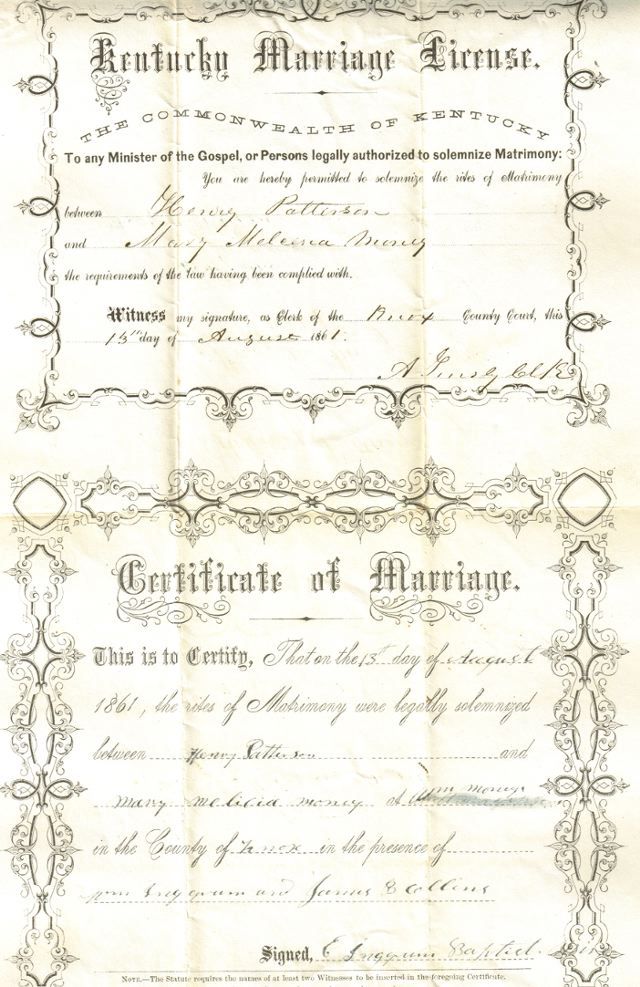 Kentucky Marriage License.
THE COMMONWEALTH OF KENTUCKY
To any Minister of the Gospel, or Persons legally authorized to solemnize Matrimony:
You are hereby permitted to solemnize the rites of Matrimony
between Henry Patterson
and Mary Meleena Money
the requirements of the law having been complied with.
Witness my signature, as Clerk of the Knox County Court, this
13th day of August 1861.
Clk
Certificate of Marriage.
This is to Certify, That on the 13th day of August
1861, the rites of Matrimony were legally solemnized
between Henry Patterson and
Mary Melicia Money at Wm Moneys
in the County of Knox in the presence of
Wm Inggram and James B Collins
Signed, E Inggrum Baptist
NOTE.—The Statute requires the names of at least two Witnesses to be inserted in the foregoing Certificate.